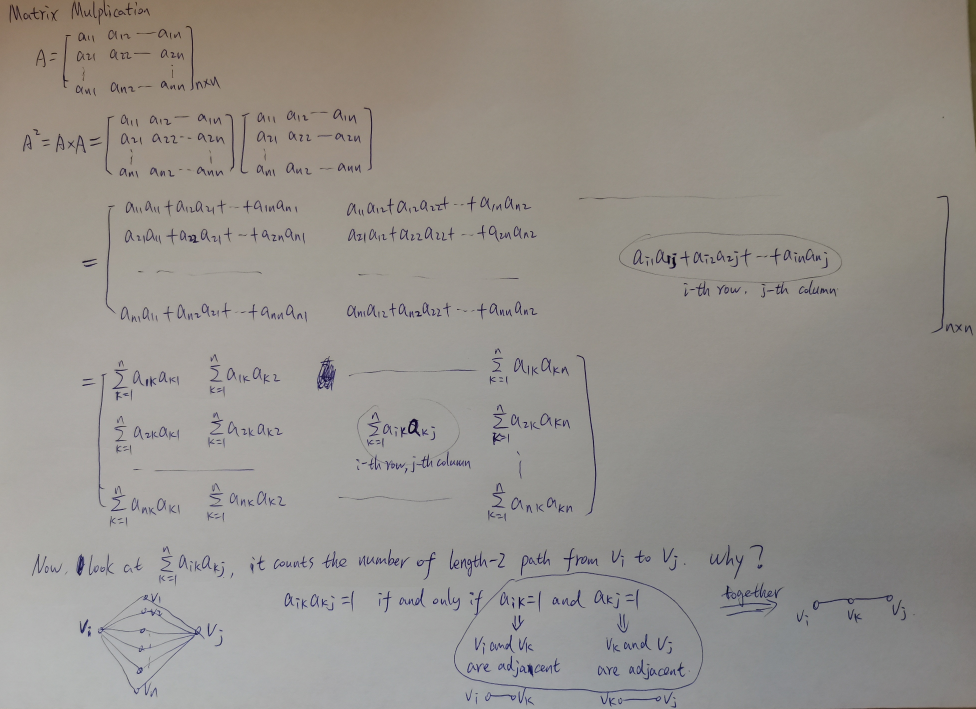 Matrix Mulplication
A = [ a11 a12 — a1n
a21 a22 — a2n
⋮ ⋮
an1 an2 -- ann ]n×n
A² = A×A = [ a11 a12 — a1n ] [ a11 a12 — a1n ]
[ a21 a22 -- a2n ] [ a21 a22 — a2n ]
⋮ ⋮ ⋮
[ an1 an2 -- ann ] [ an1 an2 — ann ]
a11a11+a12a21+--+a1nan1 a11a12+a12a22+--+a1nan2
a21a11+a22a21+--+a2nan1 a21a12+a22a22+--+a2nan2
= ai1a1j+ai2a2j+--+ainanj
i-th row, j-th column
an1a11+an2a21+--+annan1 an1a12+an2a22+--+annan2
n×n
= ∑_{k=1}^{n} a1kak1 ∑_{k=1}^{n} a1kak2 — ∑_{k=1}^{n} a1kakn
∑_{k=1}^{n} a2kak1 ∑_{k=1}^{n} a2kak2 ∑_{k=1}^{n} aikakj ∑_{k=1}^{n} a2kakn
i-th row, j-th column
∑_{k=1}^{n} ankak1 ∑_{k=1}^{n} ankak2 — ∑_{k=1}^{n} ankakn
Now, look at ∑_{k=1}^{n} aikakj, it counts the number of length-2 path from Vi to Vj. why?
aikakj=1 if and only if aik=1 and akj=1 together
⇓ ⇓
Vi and Vk Vk and Vj
are adjancent are adjacent
Vi Vk Vk Vj
Vi Vk Vj
V1
V2
Vi Vj
Vn